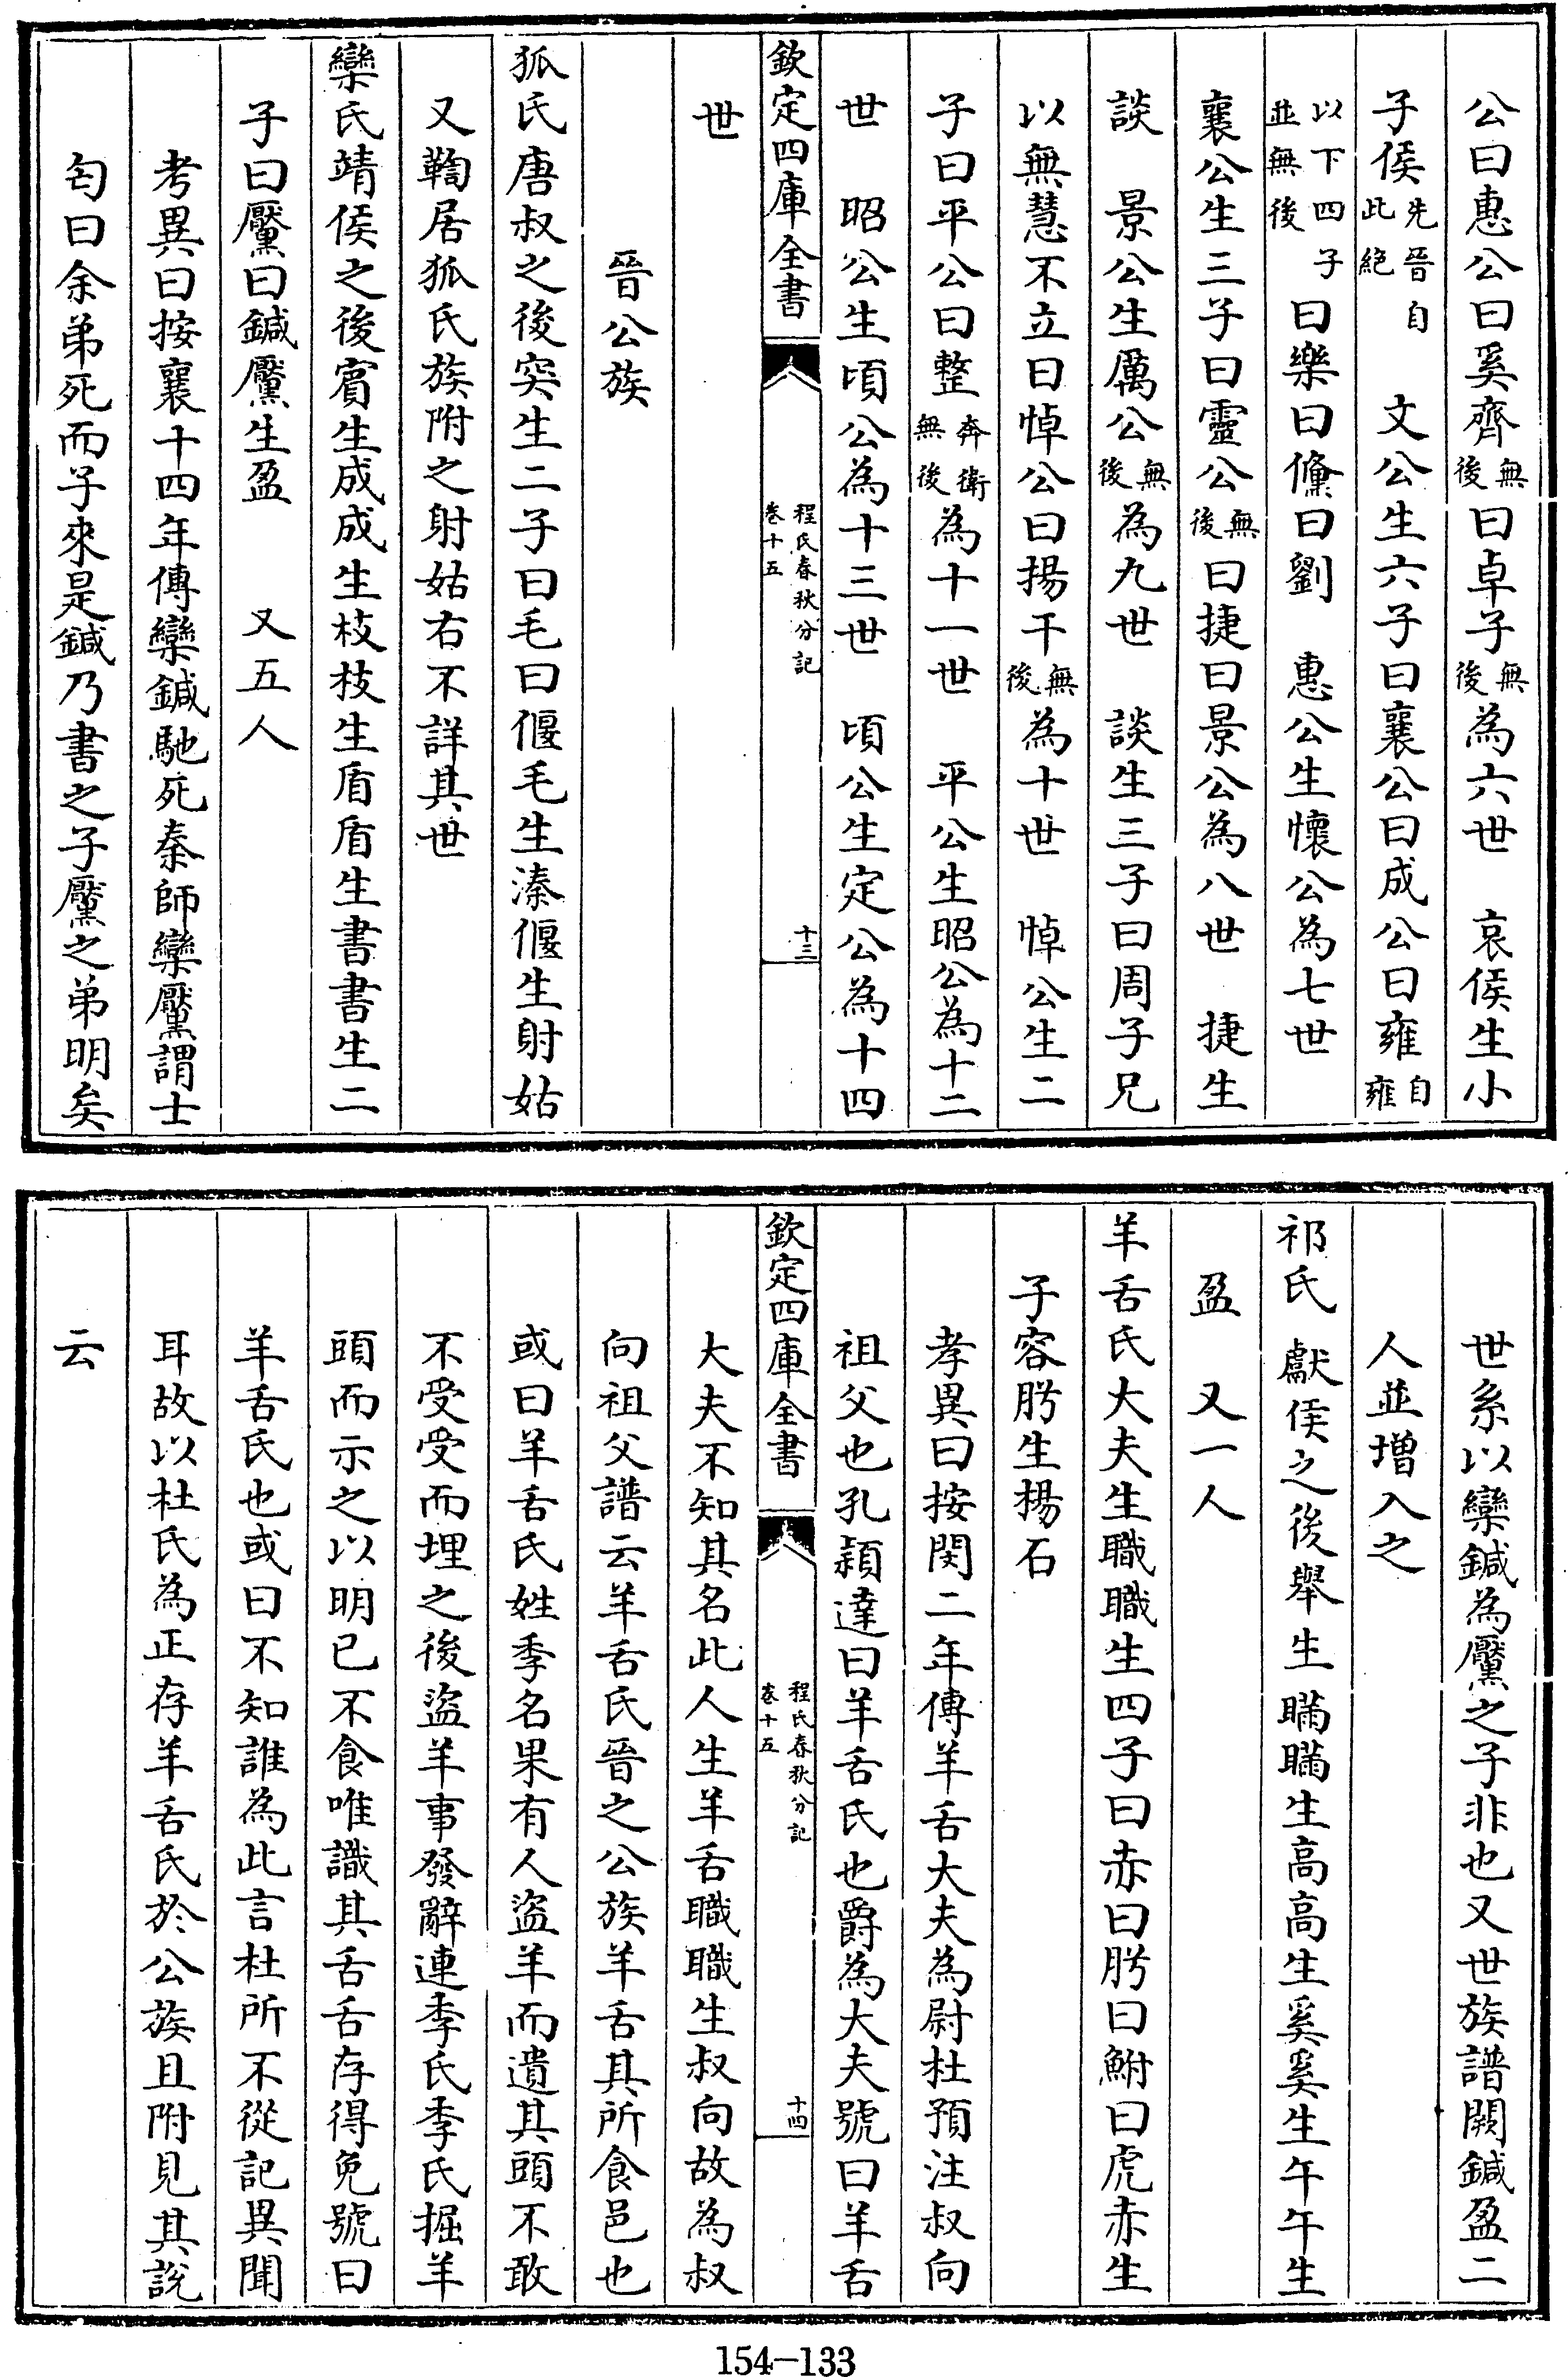 公曰惠公曰奚齊無後曰卓子無後為六世　哀侯生小
子侯先晉自此絕　文公生六子曰襄公曰成公曰雍自雍
以下四子並無後曰樂曰儵曰劉　惠公生懷公為七世
襄公生三子曰靈公無後曰捷曰景公為八世　捷生
談　景公生厲公無後為九世　談生三子曰周子兄
以無慧不立曰悼公曰揚干無後為十世　悼公生二
子曰平公曰整奔衛無後為十一世　平公生昭公為十二
世　昭公生頃公為十三世　頃公生定公為十四
欽定四庫全書　程氏春秋分記卷十五　十三
世
晉公族
狐氏唐叔之後突生二子曰毛曰偃毛生溱偃生射姑
又鞫居狐氏族附之射姑右不詳其世
欒氏靖侯之後賓生成成生枝枝生盾盾生書書生二
子曰黶曰鍼黶生盈　又五人
考異曰按襄十四年傳欒鍼馳死秦師欒黶謂士
匄曰余弟死而子來是鍼乃書之子黶之弟明矣
世系以欒鍼為黶之子非也又世族譜闕鍼盈二
人並增入之
祁氏獻侯之後舉生瞞瞞生高高生奚奚生午午生
盈　又一人
羊舌氏大夫生職職生四子曰赤曰肸曰鮒曰虎赤生
子容肸生揚石
孝異曰按閔二年傳羊舌大夫為尉杜預注叔向
祖父也孔穎達曰羊舌氏也爵為大夫號曰羊舌
欽定四庫全書　程氏春秋分記卷十五　十四
大夫不知其名此人生羊舌職職生叔向故為叔
向祖父譜云羊舌氏晉之公族羊舌其所食邑也
或曰羊舌氏姓季名果有人盜羊而遺其頭不敢
不受受而埋之後盜羊事發辭連李氏李氏掘羊
頭而示之以明已不食唯識其舌舌存得免號曰
羊舌氏也或曰不知誰為此言杜所不從記異聞
耳故以杜氏為正存羊舌氏於公族且附見其說
云
154-133